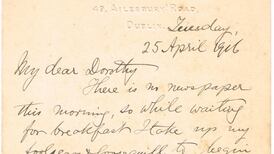 49, AILESBURY ROAD,
DUBLIN.
Tuesday,
25 April 1916
My dear Dorothy
There is no newspaper
this morning, so while waiting
for breakfast I take up my
foolscap & goosequill to begin